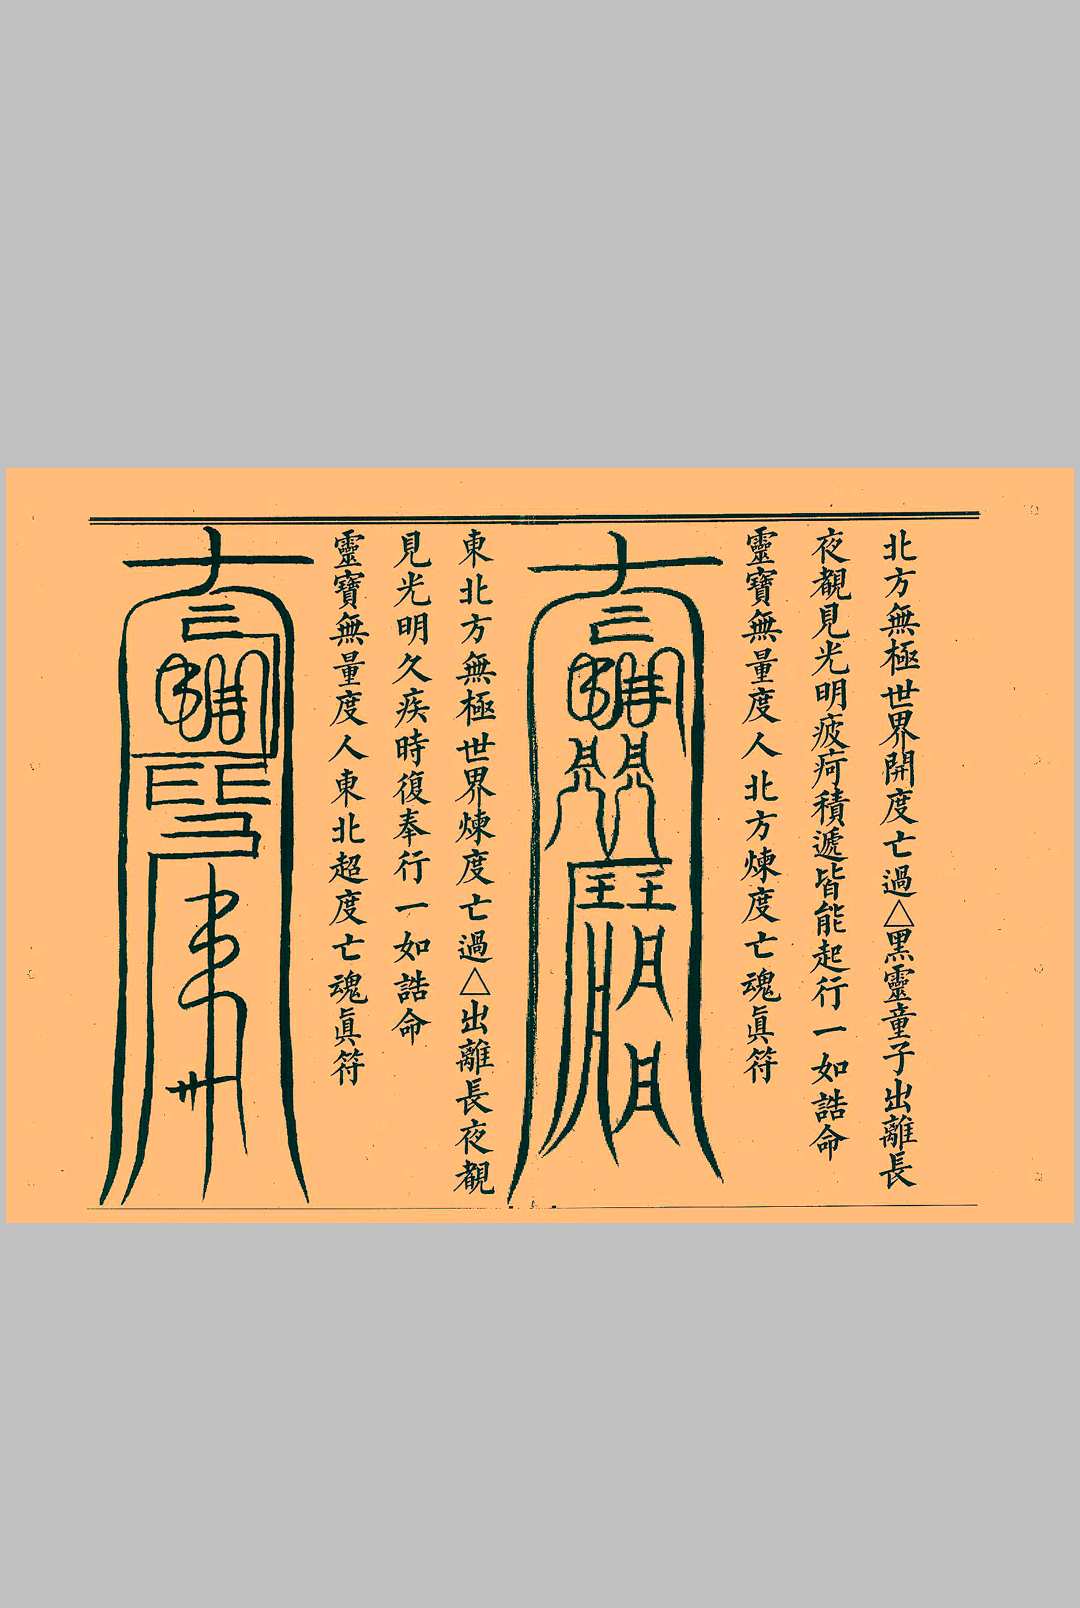 北方無極世界開度亡過△黑靈童子出離長
夜覩見光明疲疴積遞皆能起行一如誥命
靈寶無量度人北方煉度亡魂眞符
東北方無極世界煉度亡過△出離長夜覩
見光明久疾時復奉行一如誥命
靈寶無量度人東北超度亡魂眞符